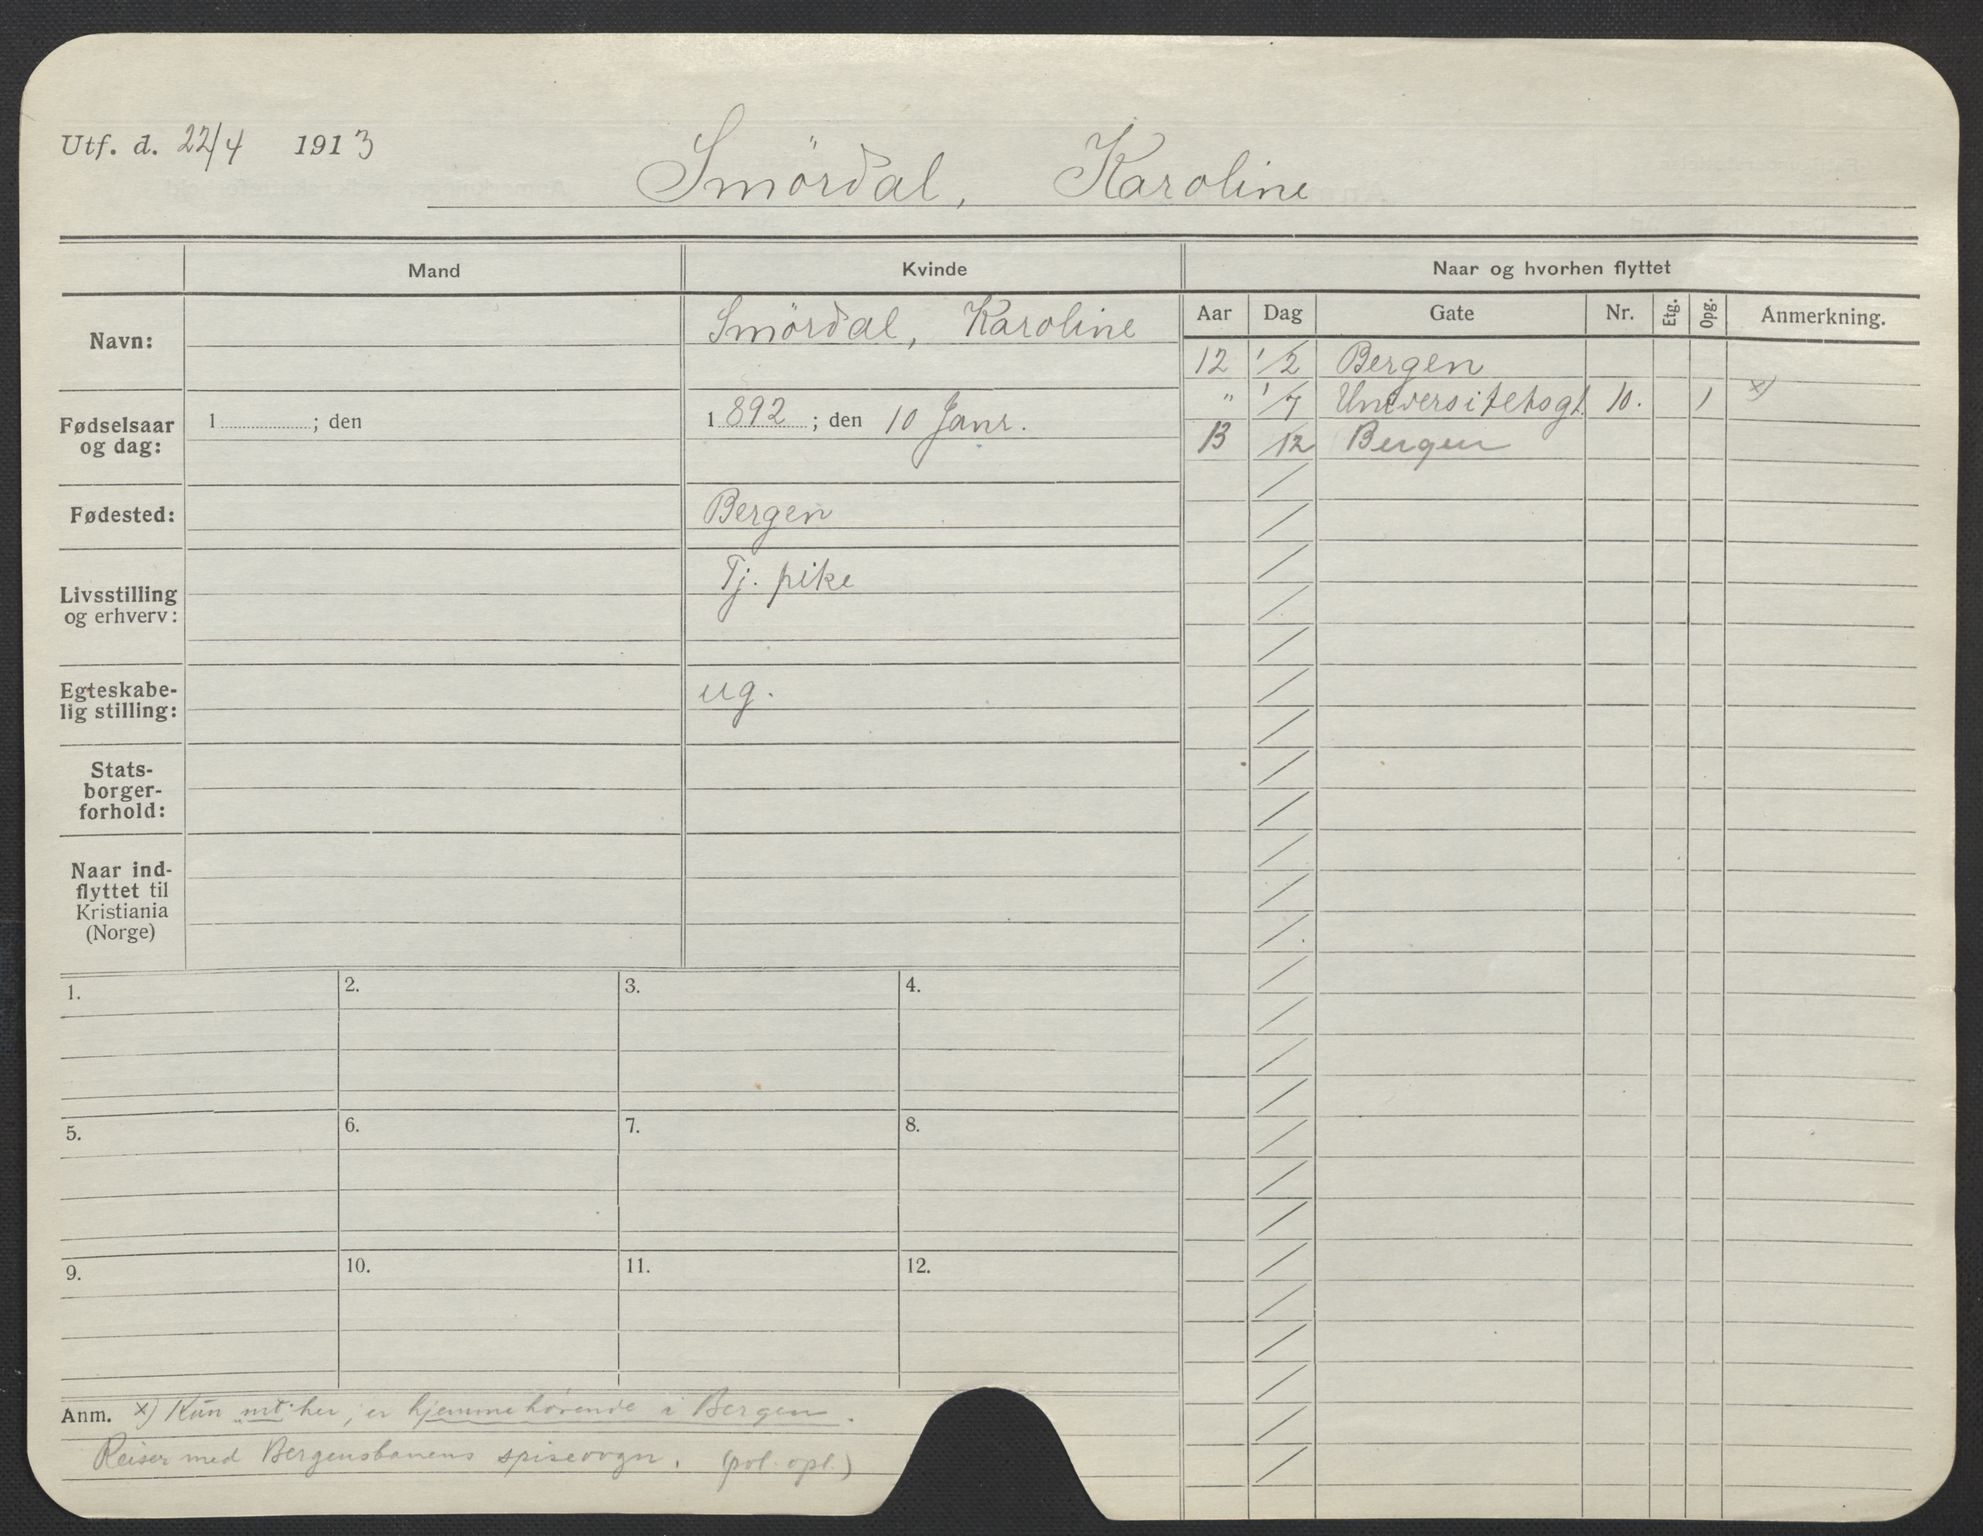 Utf. d. 22/4 1913
Smördal, Karoline
Mand
Kvinde
Naar og hvorhen flyttet
Aar Dag Gate Nr. Etg. Opg. Anmerkning.
Navn: Smördal, Karoline
Fødselsaar og dag: 1 ; den 1892 ; den 10 Janr.
Fødested: Bergen
Livsstilling og erhverv: Tj. pike
Egteskabe-
lig stilling: ug.
Stats-
borger-
forhold:
Naar ind-
flyttet til
Kristiania
(Norge)
12 1/2 Bergen
" 1/7 Universitetsgt. 10. 1 x)
13 /12 Bergen
1. 2. 3. 4.
5. 6. 7. 8.
9. 10. 11. 12.
Anm. x) Kun mt. her, er hjemmehørende i Bergen.
Reiser med Bergensbanens spisevogn. (pol. opl.)